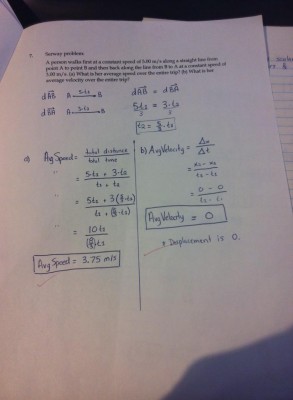 7. Serway problem
A person walks first at a constant speed of 5.00 m/s along a straight line from
point A to point B and then back along the line from B to A at a constant speed of
3.00 m/s. (a) What is her average speed over the entire trip? (b) What is her
average velocity over the entire trip?
d AB A 5·t₁ B d AB = d BA
d BA A 3·t₂ B 5·t₁ = 3·t₂
3 3
t₂ = 5/3·t₁
a) Avg Speed = total distance / total time
" = 5·t₁ + 3·t₂ / t₁ + t₂
" = 5t₁ + 3(5/3·t₁) / t₁ + (5/3·t₁)
" = 10t₁ / (8/3)t₁
Avg Speed = 3.75 m/s
b) Avg Velocity = Δx / Δt
= x₂ - x₁ / t₂ - t₁
= 0 - 0 / t₂ - t₁
Avg Velocity = 0
* Displacement is 0.